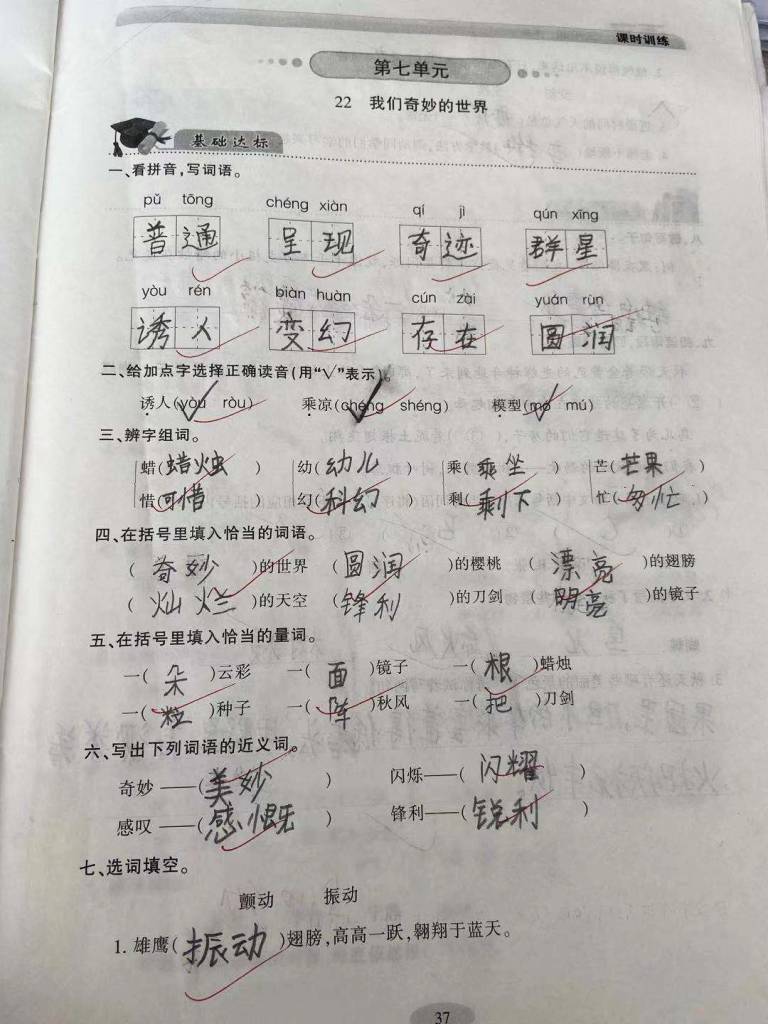 课时训练
第七单元
22 我们奇妙的世界
基础达标
一、看拼音,写词语。
pǔ tōng chéng xiàn qí jì qún xīng
普通 呈现 奇迹 群星
yòu rén biàn huàn cún zài yuán rùn
诱人 变幻 存在 圆润
二、给加点字选择正确读音(用“√”表示)。
诱人(yòu√ ròu) 乘凉(chéng√ shéng) 模型(mó√ mú)
三、辨字组词。
蜡(蜡烛) 幼(幼儿) 乘(乘坐) 芒(芒果)
惜(可惜) 幻(科幻) 剩(剩下) 忙(匆忙)
四、在括号里填入恰当的词语。
(奇妙)的世界 (圆润)的樱桃 (漂亮)的翅膀
(灿烂)的天空 (锋利)的刀剑 (明亮)的镜子
五、在括号里填入恰当的量词。
一(朵)云彩 一(面)镜子 一(根)蜡烛
一(粒)种子 一(阵)秋风 一(把)刀剑
六、写出下列词语的近义词。
奇妙——(美妙) 闪烁——(闪耀)
感叹——(感慨) 锋利——(锐利)
七、选词填空。
颤动 振动
1. 雄鹰(振动)翅膀,高高一跃,翱翔于蓝天。
37